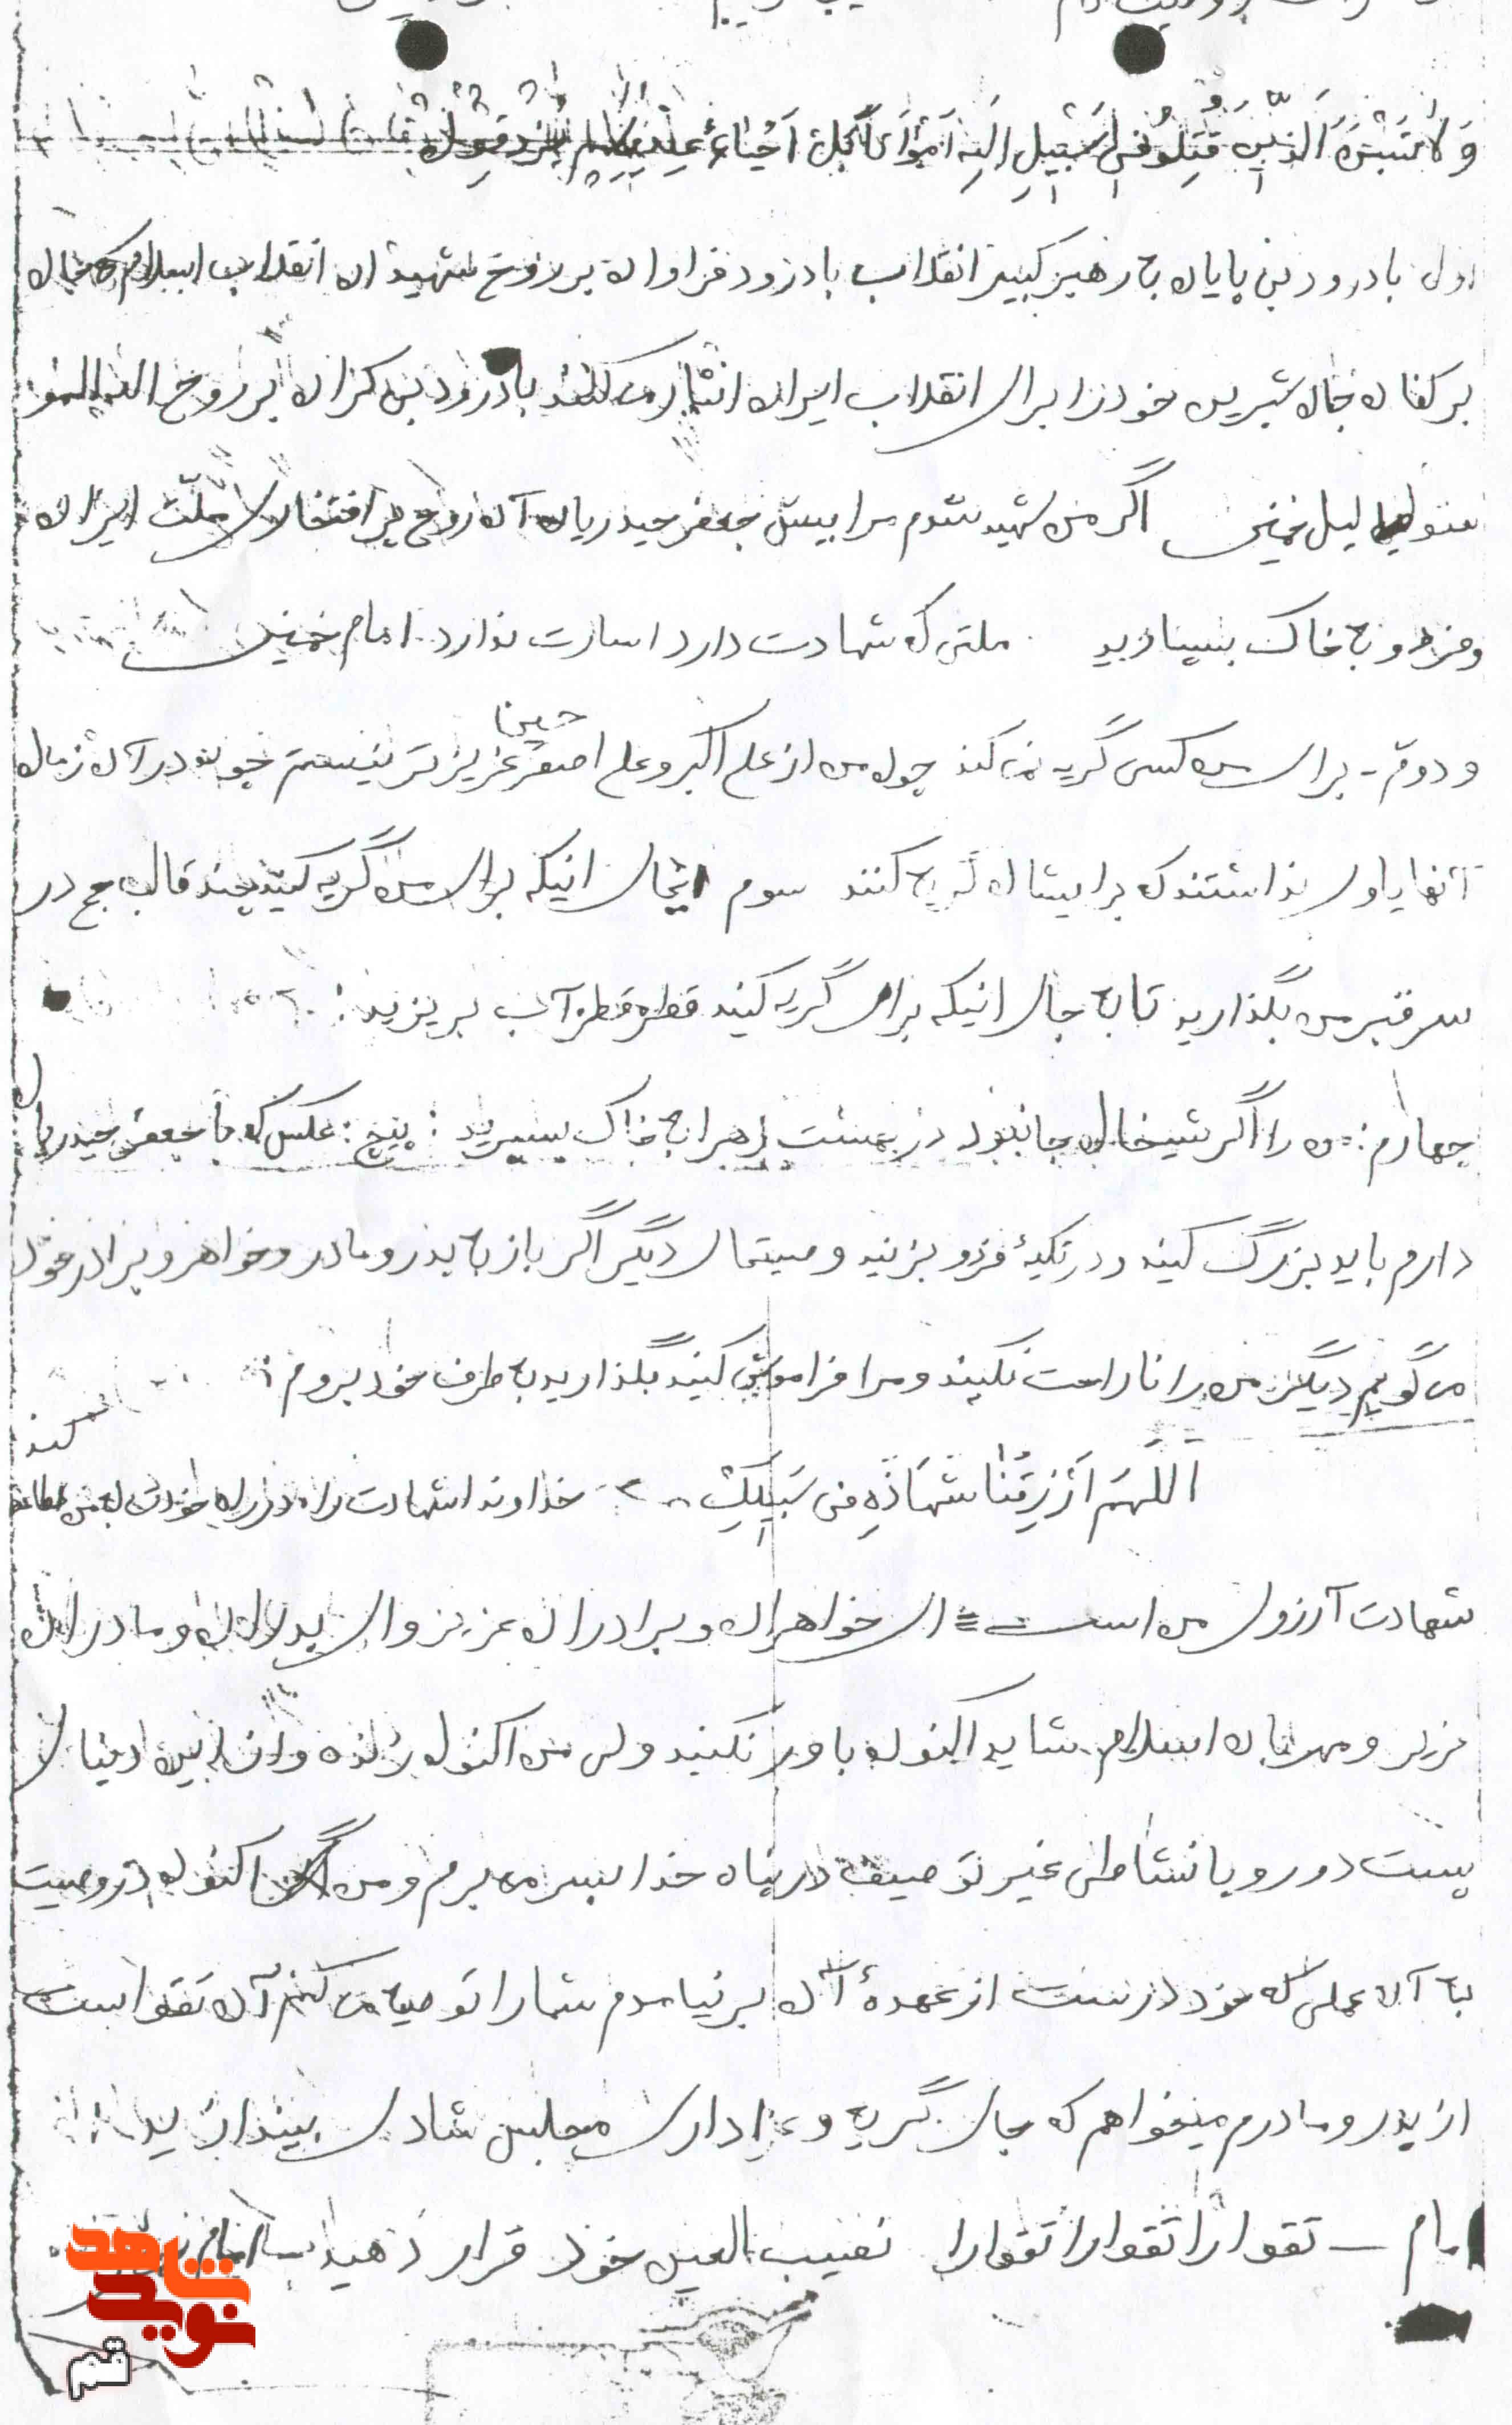 وَلاَ تَحْسَبَنَّ الَّذِینَ قُتِلُوا فِی سَبِیلِ اللهِ اَمْوَاتًا بَلْ اَحْیَاءٌ عِنْدَ رَبِّهِم یُرزَقُون
اول با درود بی پایان به رهبر کبیر انقلاب با درود فراوان بر روح شهیدان انقلاب اسلام که جان
بر کفان جان شیرین خود را برای انقلاب ایران انثار می کنند با درود بی کران بر روح الله المو
سنوی لیل خمینی اگر من شهید شدم مرا پیش جعفر حیدریان آن روح پر افتخار ملّت ایران
و فردو به خاک بسپارید ملتی که شهادت دارد اسارت ندارد. امام خمینی
حسین
و دوم - برای من کسی گریه نمی کند چون من از علی اکبر و علی اصغر عزیز تر نیستم چون در آن زمان
آنها یاوری نداشتند که برایشان گریه کنند سوم بجای انیکه برای من گریه کنید چند قالب یخ در
سر قبر من بگذارید تا به جای انیکه برای گریه کنید قطره قطره آب بریزید :
چهارم : من را اگر شیخان جا نبود در بهشت زهرا به خاک بسپرید : پنج : عکس که با جعفر حیدریان
دارم باید بزرگ کنید و در تکیهٔ فردو بزنید وصیتهای دیگر اگر باز به پدر و مادر و خواهر و برادر خود
می گویم دیگر من را ناراحت نکنید و مرا فراموش کنید بگذارید به طرف خدا بروم :
اَللّهُمَ اَرْزِقْنَا شَهَادَهِ فی سَبیلِکِ خداوندا شهادت را در راه خودت به من عطا کند
شهادت آرزوی من است = ای خواهران و برادران عزیز و ای پدران و مادران
عزیز و مهربان اسلام شاید اکنون باور نکنید ولی من اکنون زنده و از این دنیای
پست دور و با نشاطی غیر توصیف در پناه خدا بسر می برم و من اکنون در وصیت
به آن عملی که خود درست از عهدهٔ آن بر نیامدم شما را توصیه می کنم آن تقوا است
از پدر و مادرم میخواهم که جای گریه و عزاداری مجلس شادی بیندازید
امام — تقوا را تقوا را تقوا را نصیب العین خود قرار دهید امام
شاهد
نوید
قم